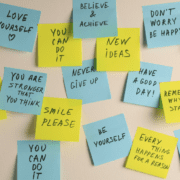 LOVE
YOURSELF
BELIEVE
&
ACHIEVE
DON'T
WORRY
BE HAPPY
YOU
CAN
DO IT
NEW
IDEAS
YOU ARE
STRONGER
THAT
YOU THINK
NEVER
GIVE UP
HAVE A
GOOD
DAY!
WHY
SMILE
PLEASE
BE
YOURSELF
EVERY
THING
HAPPENS
FOR A REASON
YOU
CAN
DO IT